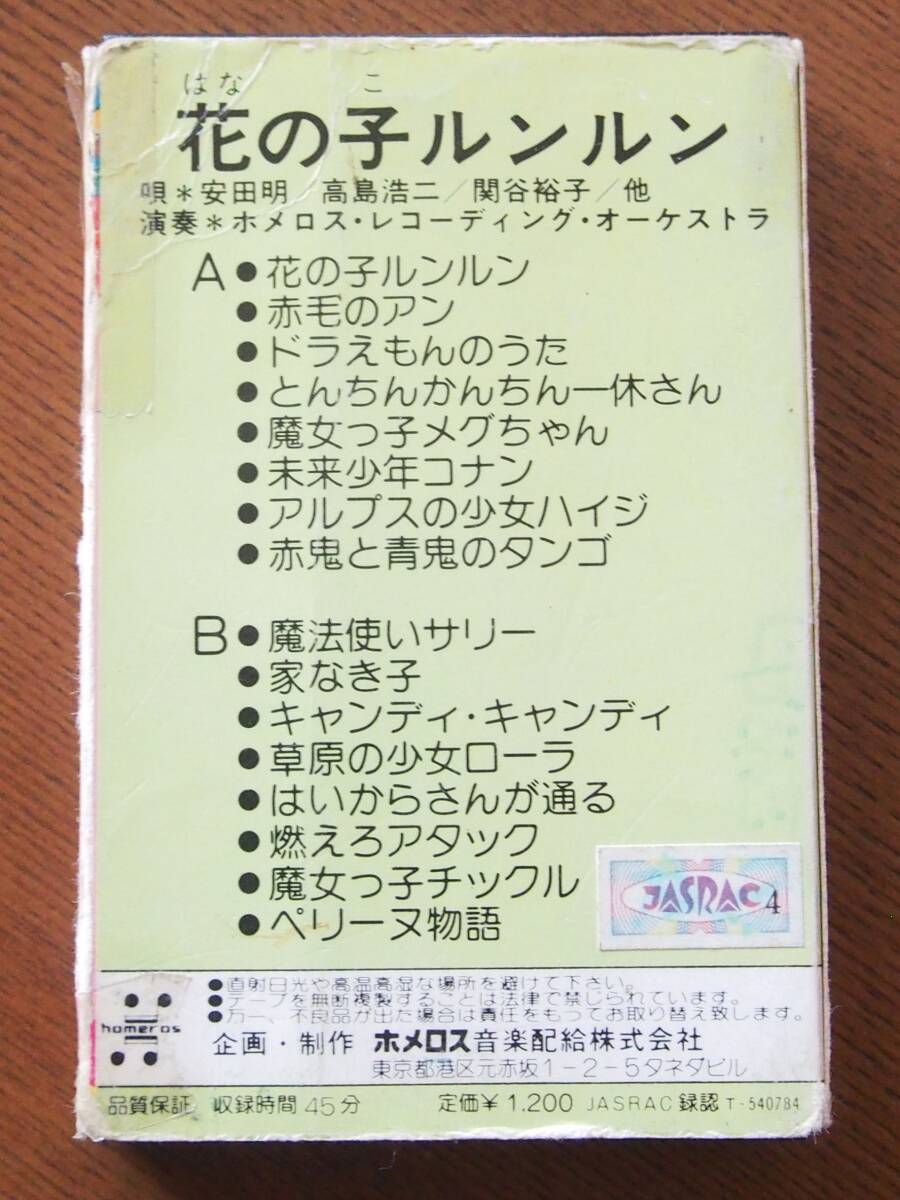 はな こ
花の子ルンルン
唄＊安田明／高島浩二／関谷裕子／他
演奏＊ホメロス・レコーディング・オーケストラ
A●花の子ルンルン
●赤毛のアン
●ドラえもんのうた
●とんちんかんちん一休さん
●魔女っ子メグちゃん
●未来少年コナン
●アルプスの少女ハイジ
●赤鬼と青鬼のタンゴ
B●魔法使いサリー
●家なき子
●キャンディ・キャンディ
●草原の少女ローラ
●はいからさんが通る
●燃えろアタック
●魔女っ子チックル
●ペリーヌ物語
JASRAC 4
●直射日光や高温高湿な場所を避けて下さい。
●テープを無断複製することは法律で禁じられています。
●万一、不良品が出た場合は責任をもってお取り替え致します。
homeros
企画・制作 ホメロス音楽配給株式会社
東京都港区元赤坂1-2-5タネダビル
品質保証 収録時間45分 定価¥1.200 JASRAC録認T-540784